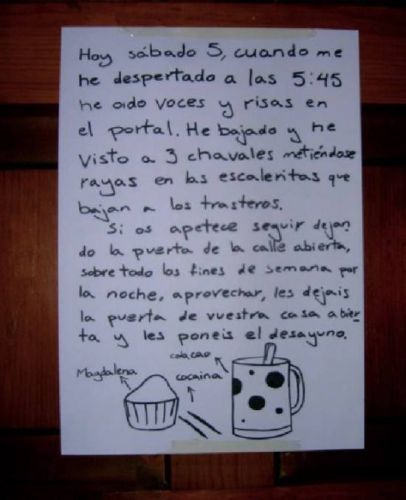 Hoy sábado 5, cuando me
he despertado a las 5:45
he oido voces y risas en
el portal. He bajado y he
visto a 3 chavales metiéndose
rayas en las escaleritas que
bajan a los trasteros.
Si os apetece seguir dejan
do la puerta de la calle abierta,
sobre todo los fines de semana por
la noche, aprovechar, les dejais
la puerta de vuestra casa abier
ta y les poneis el desayuno.
Magdalena
cocaina
cola cao